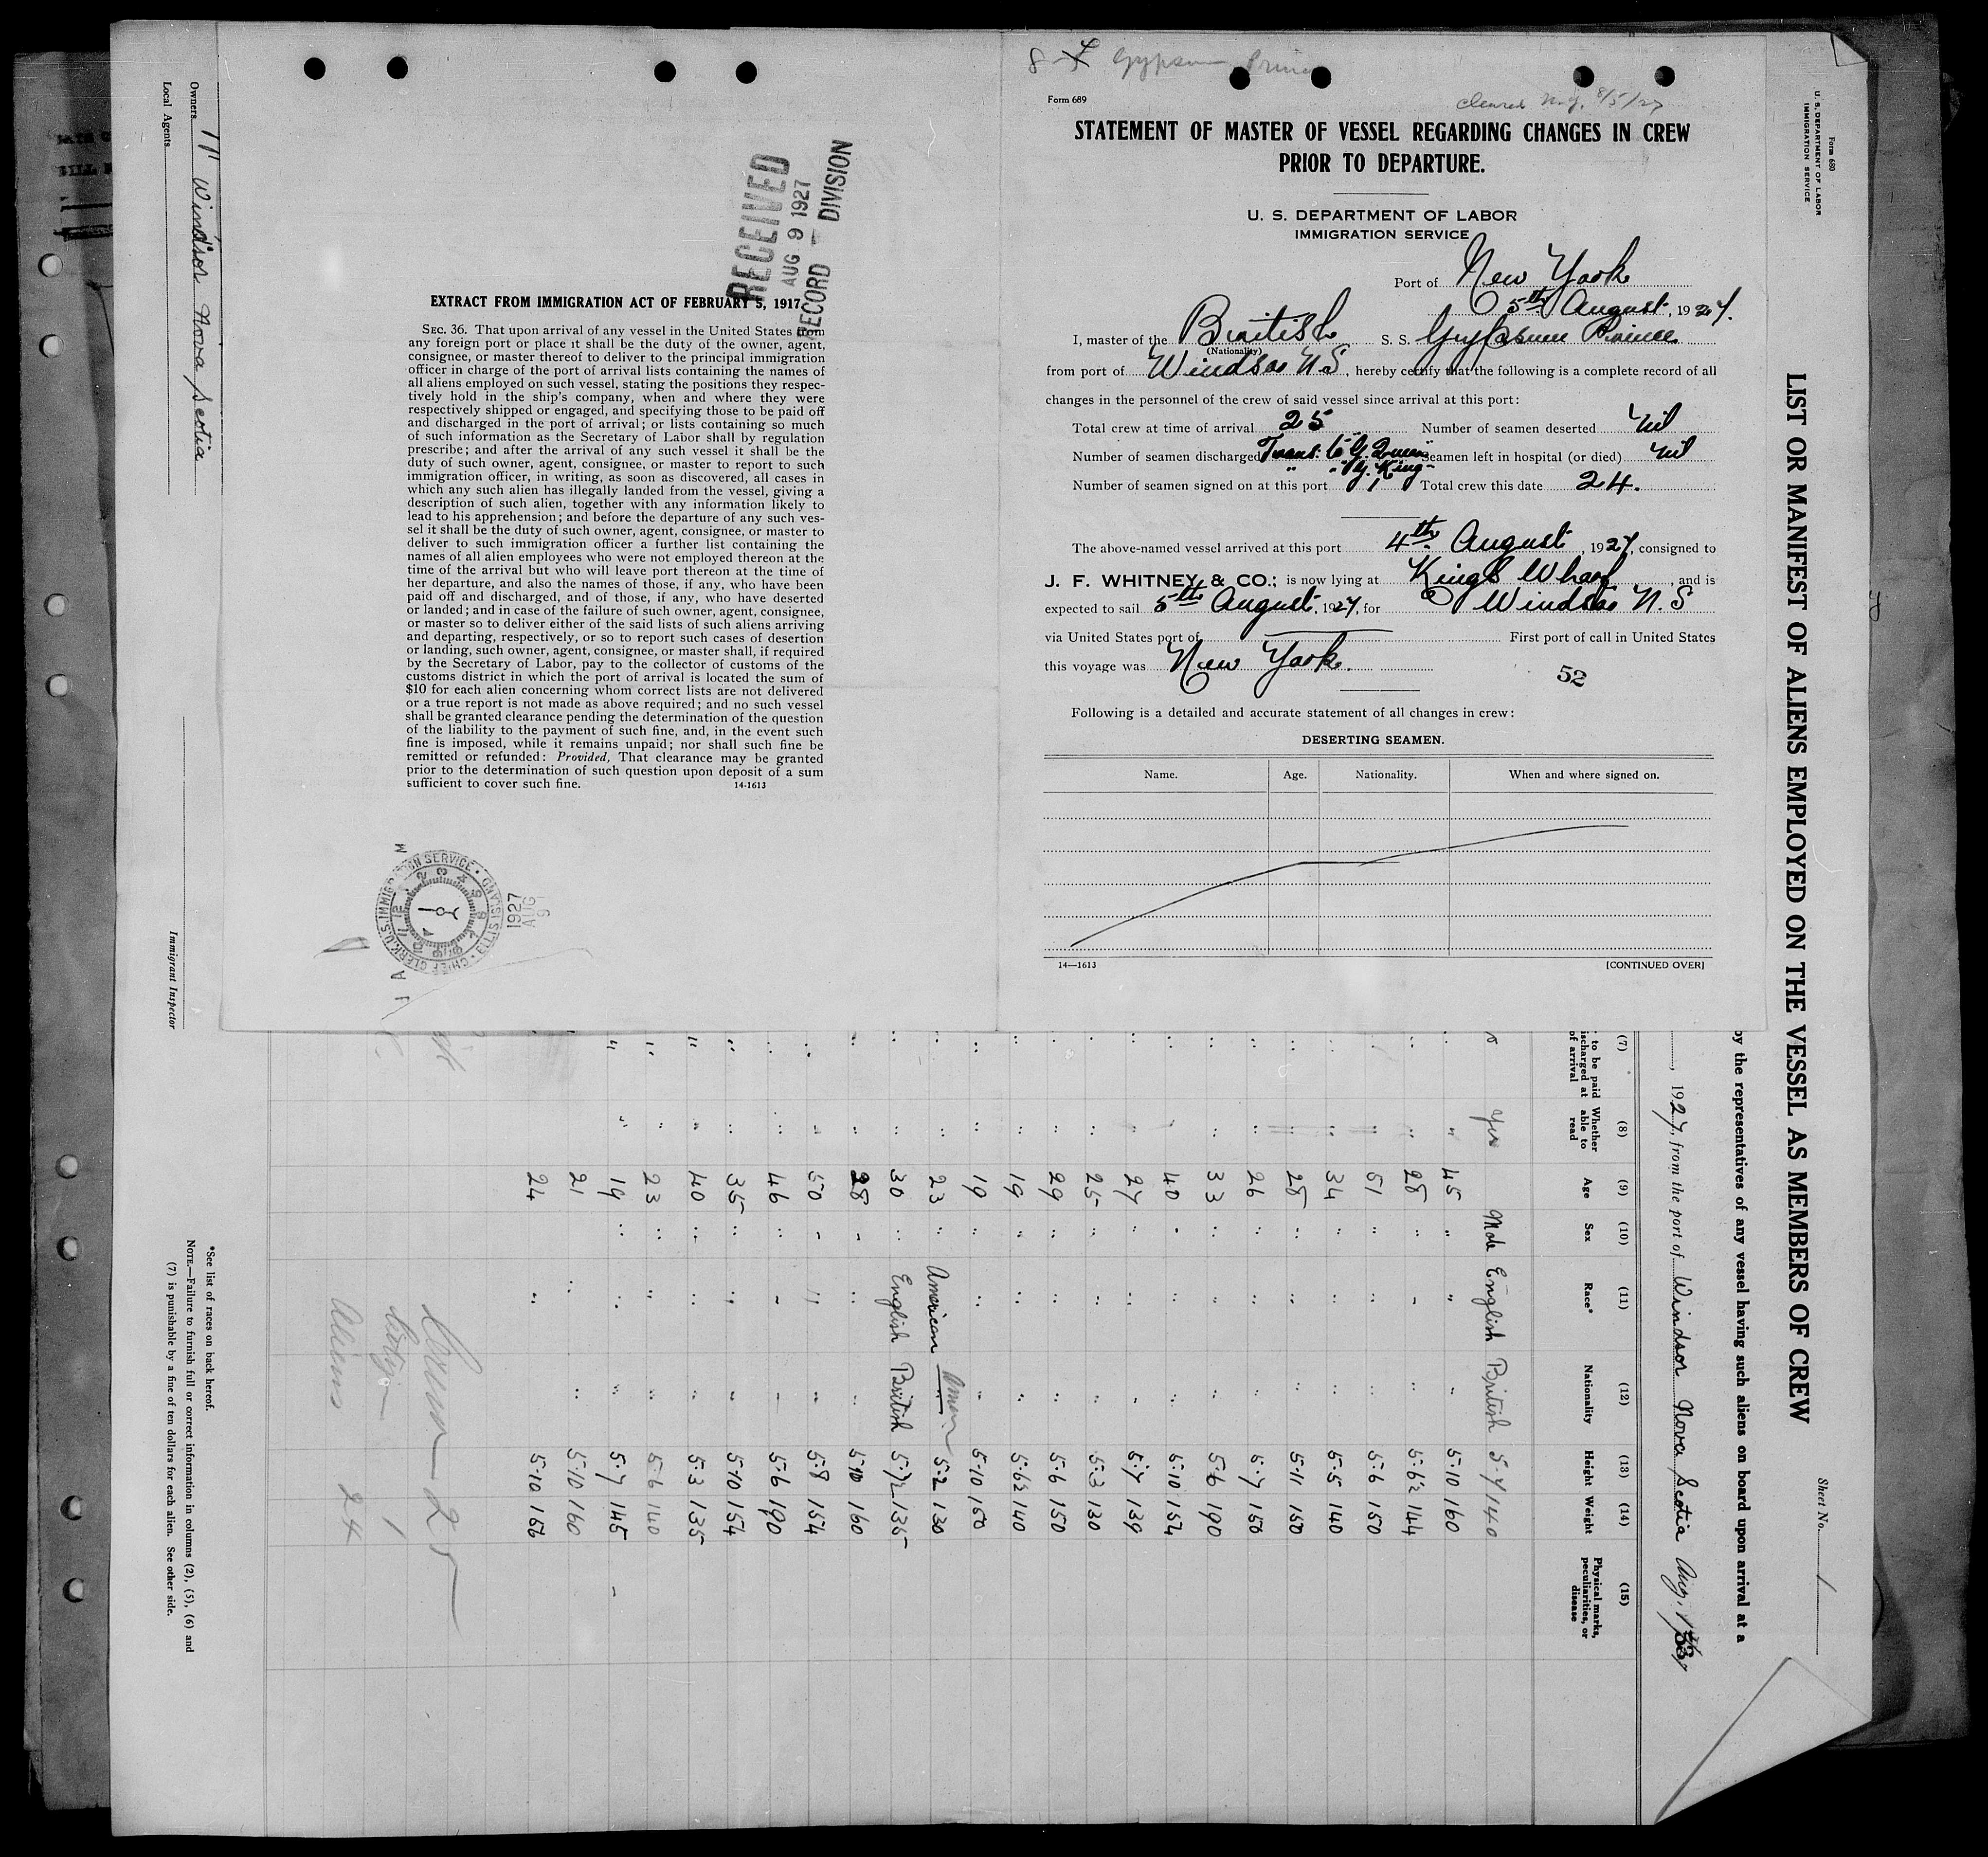 8-4 Gypsum Prince
cleared N.Y. 8/5/27
Form 689
STATEMENT OF MASTER OF VESSEL REGARDING CHANGES IN CREW
PRIOR TO DEPARTURE.
U. S. DEPARTMENT OF LABOR
IMMIGRATION SERVICE
Port of New York
5th August, 1927.
I, master of the British S. S. Gypsum Prince
(Nationality)
from port of Windsor N.S, hereby certify that the following is a complete record of all
changes in the personnel of the crew of said vessel since arrival at this port:
Total crew at time of arrival 25 Number of seamen deserted Nil
Number of seamen discharged Trans. to G. Queen Seamen left in hospital (or died) Nil
" " G. King
Number of seamen signed on at this port 1 Total crew this date 24.
The above-named vessel arrived at this port 4th August, 1927, consigned to
J. F. WHITNEY & CO.; is now lying at Kings Wharf, and is
expected to sail 5th August, 1927, for Windsor N.S
via United States port of First port of call in United States
this voyage was New York.
52
Following is a detailed and accurate statement of all changes in crew:
DESERTING SEAMEN.
Name. Age. Nationality. When and where signed on.
14—1613 [CONTINUED OVER]
RECEIVED
AUG 9 1927
RECORD - DIVISION
EXTRACT FROM IMMIGRATION ACT OF FEBRUARY 5, 1917.
SEC. 36. That upon arrival of any vessel in the United States from
any foreign port or place it shall be the duty of the owner, agent,
consignee, or master thereof to deliver to the principal immigration
officer in charge of the port of arrival lists containing the names of
all aliens employed on such vessel, stating the positions they respec-
tively hold in the ship's company, when and where they were
respectively shipped or engaged, and specifying those to be paid off
and discharged in the port of arrival; or lists containing so much
of such information as the Secretary of Labor shall by regulation
prescribe; and after the arrival of any such vessel it shall be the
duty of such owner, agent, consignee, or master to report to such
immigration officer, in writing, as soon as discovered, all cases in
which any such alien has illegally landed from the vessel, giving a
description of such alien, together with any information likely to
lead to his apprehension; and before the departure of any such ves-
sel it shall be the duty of such owner, agent, consignee, or master to
deliver to such immigration officer a further list containing the
names of all alien employees who were not employed thereon at the
time of the arrival but who will leave port thereon at the time of
her departure, and also the names of those, if any, who have been
paid off and discharged, and of those, if any, who have deserted
or landed; and in case of the failure of such owner, agent, consignee,
or master so to deliver either of the said lists of such aliens arriving
and departing, respectively, or so to report such cases of desertion
or landing, such owner, agent, consignee, or master shall, if required
by the Secretary of Labor, pay to the collector of customs of the
customs district in which the port of arrival is located the sum of
$10 for each alien concerning whom correct lists are not delivered
or a true report is not made as above required; and no such vessel
shall be granted clearance pending the determination of the question
of the liability to the payment of such fine, and, in the event such
fine is imposed, while it remains unpaid; nor shall such fine be
remitted or refunded: Provided, That clearance may be granted
prior to the determination of such question upon deposit of a sum
sufficient to cover such fine.
14-1613
CHIEF CLERK, U.S. IMMIGRATION SERVICE · ELLIS ISLAND
1927
AUG
9
Form 680
U. S. DEPARTMENT OF LABOR
IMMIGRATION SERVICE
Sheet No. 1
LIST OR MANIFEST OF ALIENS EMPLOYED ON THE VESSEL AS MEMBERS OF CREW
by the representatives of any vessel having such aliens on board upon arrival at a
, 1927, from the port of Windsor Nova Scotia Aug. 1st
(7) (8) (9) (10) (11) (12) (13) (14) (15)
to be paid
discharged at
of arrival
Whether
able to
read
Age Sex Race* Nationality Height Weight
Physical marks,
peculiarities, or
disease
yes Male English British 5·7 140
" 45 " " " 5·10 160
" 28 " " " 5·6½ 144
" 51 " " " 5·6 150
" 34 " " " 5·5 140
" 28 " " " 5·11 150
" 26 " " " 5·7 150
" 33 " " " 5·6 190
" 40 " " " 5·10 154
" 27 " " " 5·7 139
" 25 " " " 5·3 130
" 29 " " " 5·6 150
" 19 " " " 5·6½ 140
" 19 " " " 5·10 150
" 23 " American Amer 5·2 130
" 30 " English British 5·7½ 135
" 28 " " " 5·10 160
" 50 " " " 5·8 154
" 46 " " " 5·6 190
" 35 " " " 5·10 154
" 40 " " " 5·3 135
" 23 " " " 5·6 140
" 19 " " " 5·7 145
21 " " 5·10 160
24 " 5·10 156
Crew 25
1
Aliens 24
*See list of races on back hereof.
NOTE.—Failure to furnish full or correct information in columns (2), (5), (6) and
(7) is punishable by a fine of ten dollars for each alien. See other side.
Owners " Windsor Nova Scotia
Local Agents
Immigrant Inspector